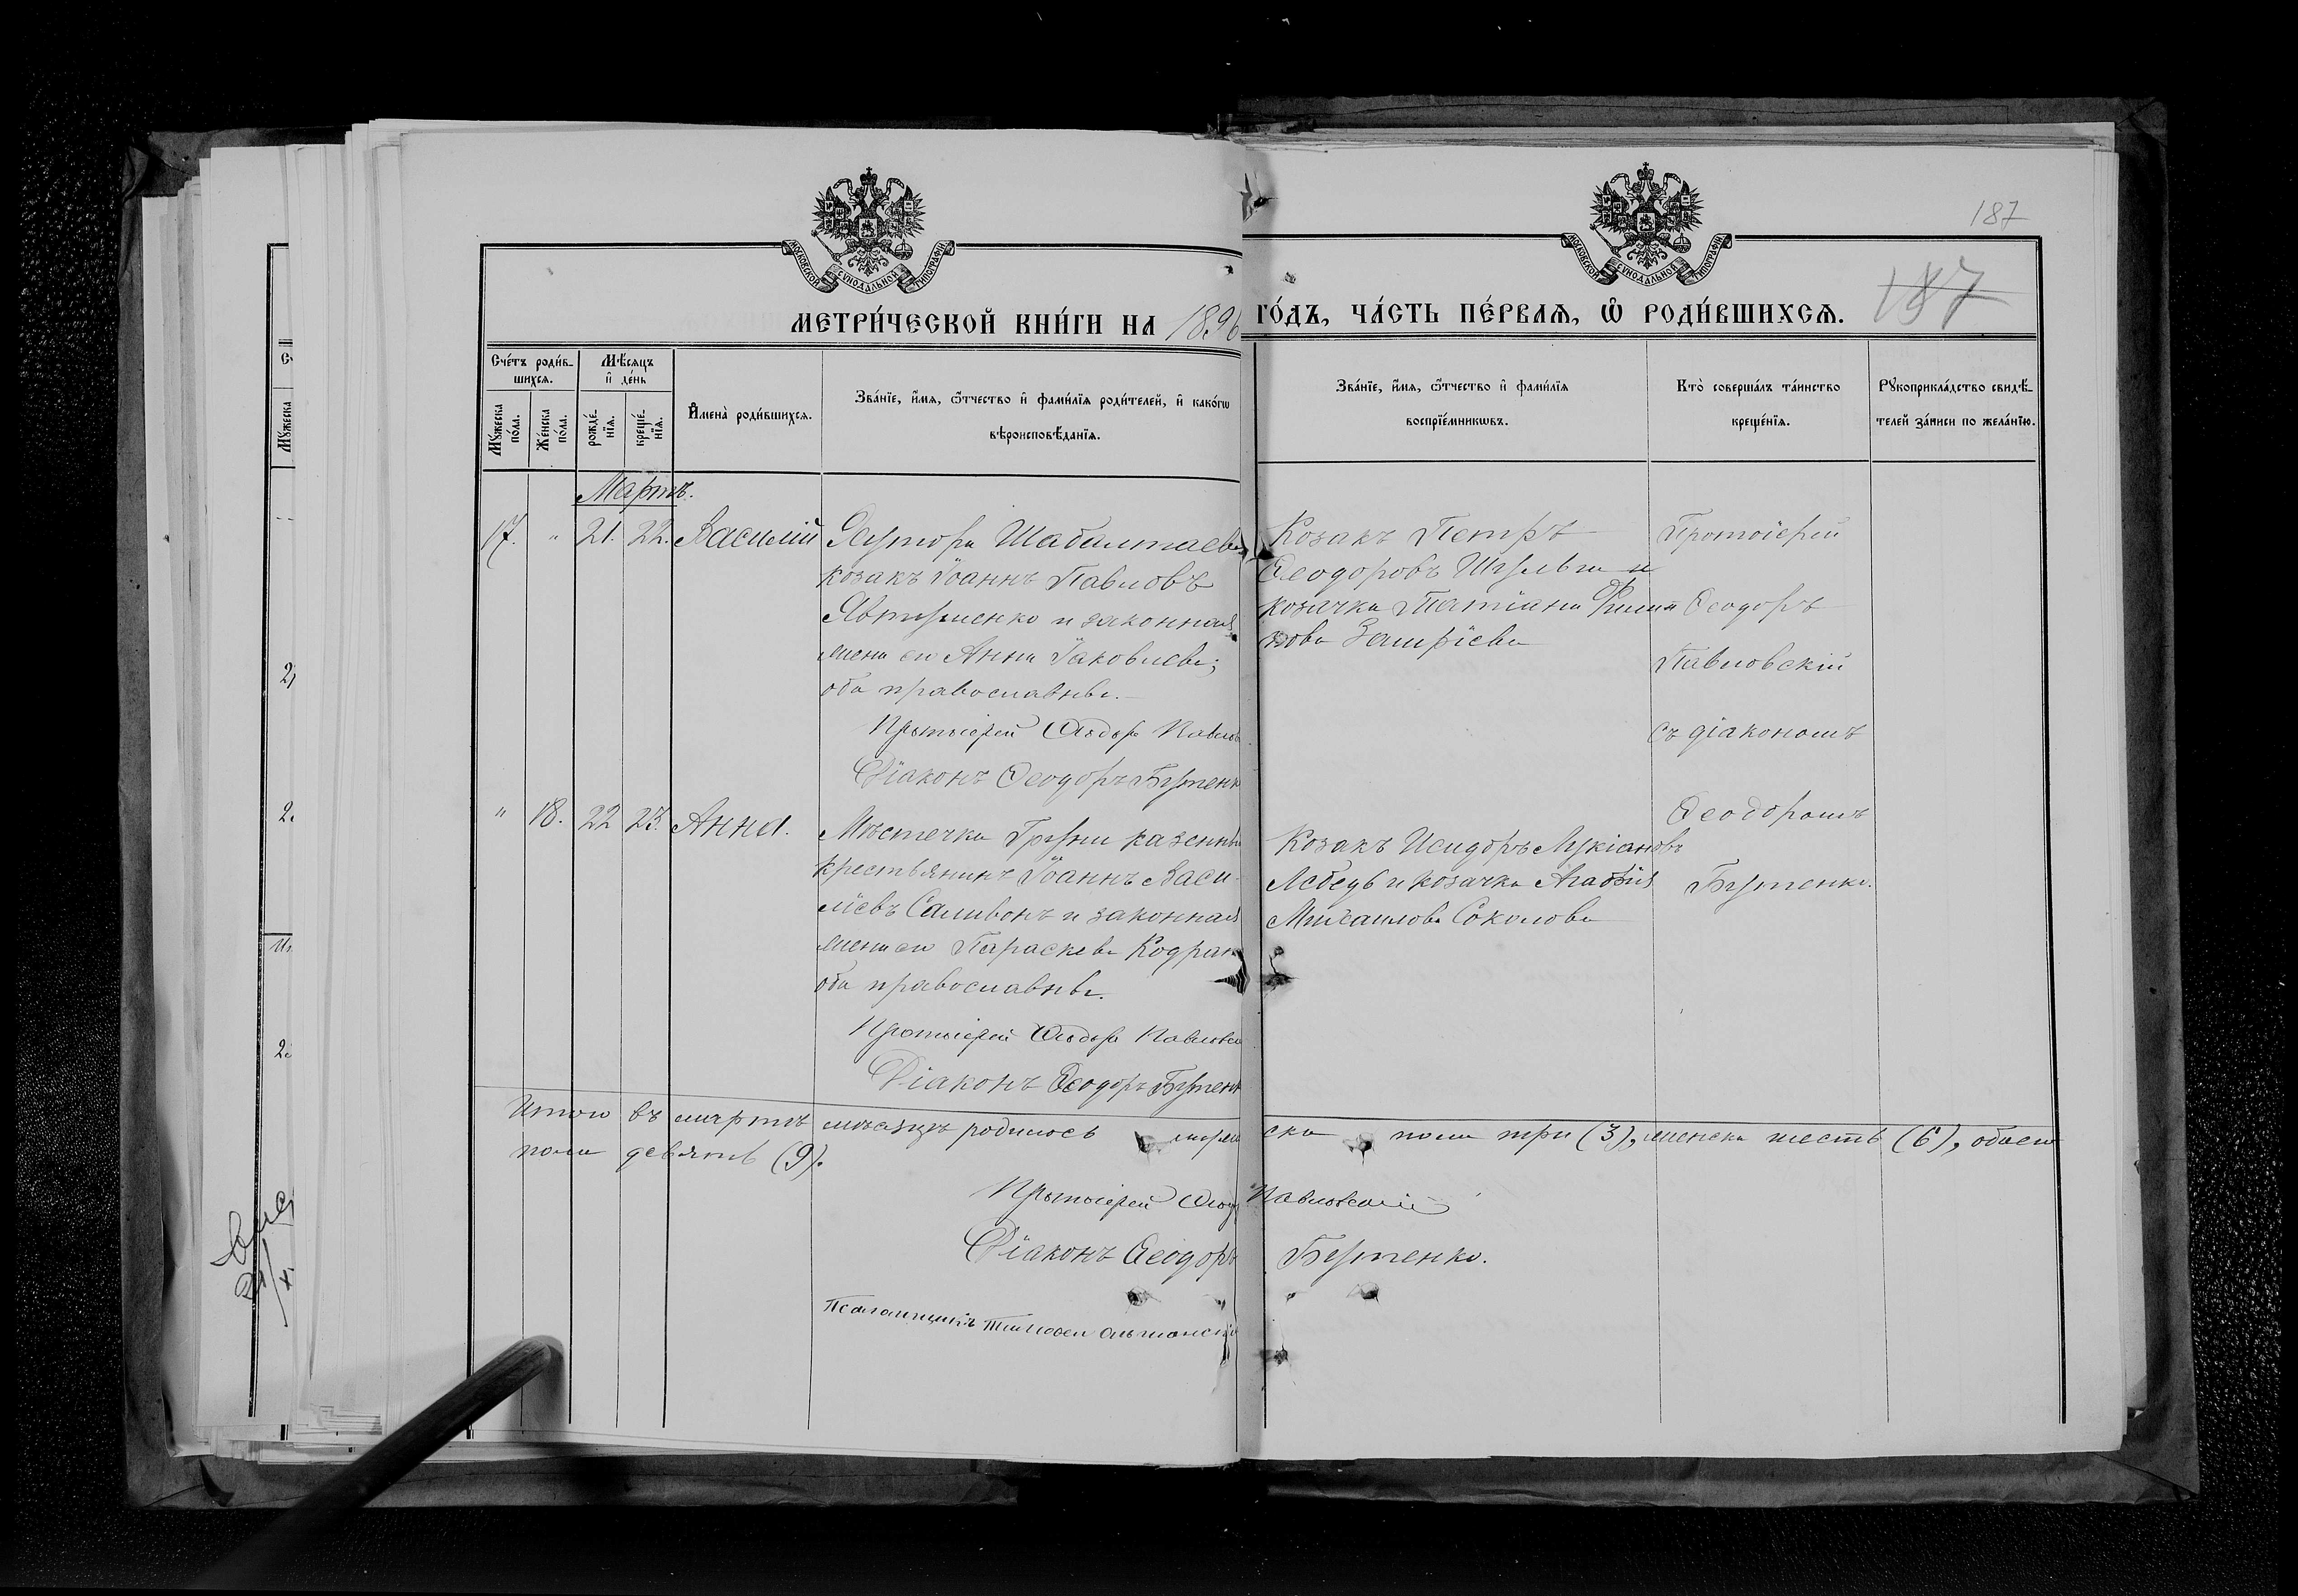 187
187
МОСКОВСКОЙ СѴНОДАЛЬНОЙ ТИПОГРАФІИ
МОСКОВСКОЙ СѴНОДАЛЬНОЙ ТИПОГРАФІИ
МЕТРИ́ЧЕСКОЙ КНИ́ГИ НА 1896 ГО́ДЪ, ЧА́СТЬ ПЕ́РВАѦ, Ѡ҆ РОДИ́ВШИХСѦ.
Сче́тъ роди́в-
шихсѧ.
Мꙋ́жеска
по́ла.
Же́нска
по́ла.
Мѣ́сѧцъ
и҆ де́нь
рожде́-
нїѧ.
креще́-
нїѧ.
И҆мена̀ роди́вшихсѧ.
Зва́нїе, и҆́мѧ, ѻ҆́тчество и҆ фами́лїѧ роди́телей, и҆ како́гѡ
вѣроисповѣ́данїѧ.
Зва́нїе, и҆́мѧ, ѻ҆́тчество и҆ фами́лїѧ
воспрїе́мникѡвъ.
Кто̀ соверша́лъ та́инство
креще́нїѧ.
Рꙋкоприкла́дство свидѣ́-
телей за́писи по жела́нїю.
Мартъ.
17. " 21. 22. Василій
Хутора
козакъ Іоаннъ Павловъ
и законная
жена его Анна Іаковлева;
оба православны.
Протоіерей Ѳеодоръ
Діаконъ Ѳеодоръ Бутенк
Козакъ Петръ
Ѳеодоровъ и
козачка Татіана Филип
пова
Протоіерей
Ѳеодоръ
Павловскій
съ діакономъ
Ѳеодоромъ
Бутенко.
" 18. 22 23. Анна.
Мѣстечка Груни казенный
крестьянинъ Іоаннъ Васи-
ліевъ Саливонъ и законная
жена его Параскева Кодрат
оба православны.
Протоіерей Ѳеодоръ
Діаконъ Ѳеодоръ Бутенк
Козакъ Исидоръ Лукіановъ
Лебедь и козачка Агаѳія
Михаилова Соколова
Итого въ мартѣ мѣсяцѣ родилось мужеска пола три (3), женска шесть (6), обоего
пола девять (9).
Протоіерей Ѳеод Павловскій
Діаконъ Ѳеодоръ Бутенко.
Псаломщикъ Тимоѳей